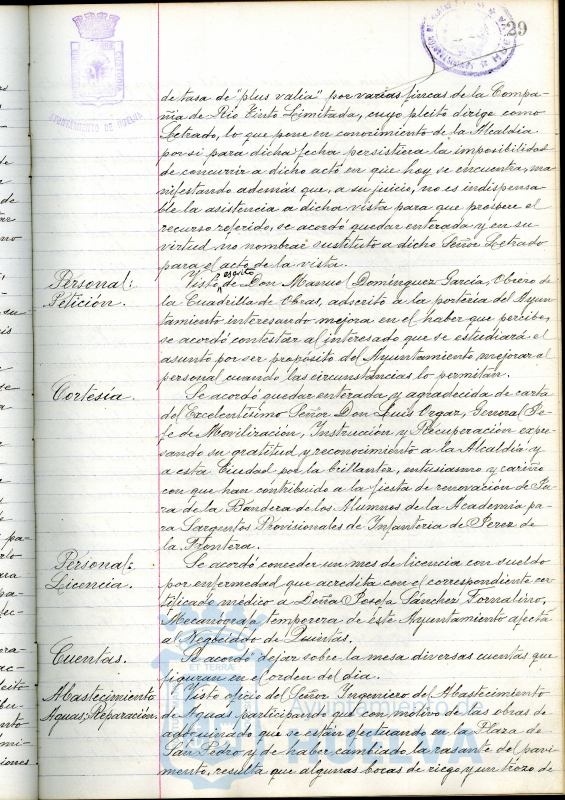 29
AYUNTAMIENTO DE HUELVA
de tasa de "plus valia" por varias fincas de la Compa-
ñia de Rio Tinto Limitada, cuyo pleito dirige como
Letrado, lo que pone en conocimiento de la Alcaldia
por si para dicha fecha persistiera la imposibilidad
de concurrir a dicho acto en que hoy se encuentra, ma
nifestando además que, a su juicio, no es indispensa-
ble la asistencia a dicha vista para que prospere el
recurso referido, se acordó quedar enterada y en su
virtud no nombrar sustituto a dicho Señor Letrado
para el acto de la vista.
Personal:
Petición.
Visto escrito de Don Manuel Domínguez García, Obrero de
la Cuadrilla de Obras, adscrito a la porteria del Ayun-
tamiento interesando mejora en el haber que percibe,
se acordó contestar al interesado que se estudiará el
asunto por ser propósito del Ayuntamiento mejorar al
personal cuando las circunstancias lo permitan.
Cortesía.
Se acordó quedar enterada y agradecida de carta
del Excelentísimo Señor Don Luis Orgaz, General Je-
fe de Movilización, Instrucción y Recuperación expre-
sando su gratitud y reconocimiento a la Alcaldia y
a esta Ciudad por la brillantez, entusiasmo y cariño
con que han contribuido a la fiesta de renovación de Ju
ra de la Bandera de los Alumnos de la Academia pa-
ra Sargentos Provisionales de Infanteria de Jerez de
la Frontera.
Personal:
Licencia.
Se acordó conceder un mes de licencia con sueldo
por enfermedad que acredita con el correspondiente cer-
tificado médico a Doña Josefa Sánchez Tornalino,
Mecanógrafa temporera de este Ayuntamiento afecta
al Negociado de Quintas.
Cuentas.
Se acordó dejar sobre la mesa diversas cuentas que
figuran en el orden del dia.
Abastecimiento
Aguas; Reparación.
Visto oficio del Señor Ingeniero del Abastecimiento
de Aguas participando que con motivo de las obras de
adoquinado que se están efectuando en la Plaza de
San Pedro y de haber cambiado la rasante del pavi-
mento, resulta que algunas bocas de riego y un trozo de
ET TERRA
Ayuntamiento de
HUELVA